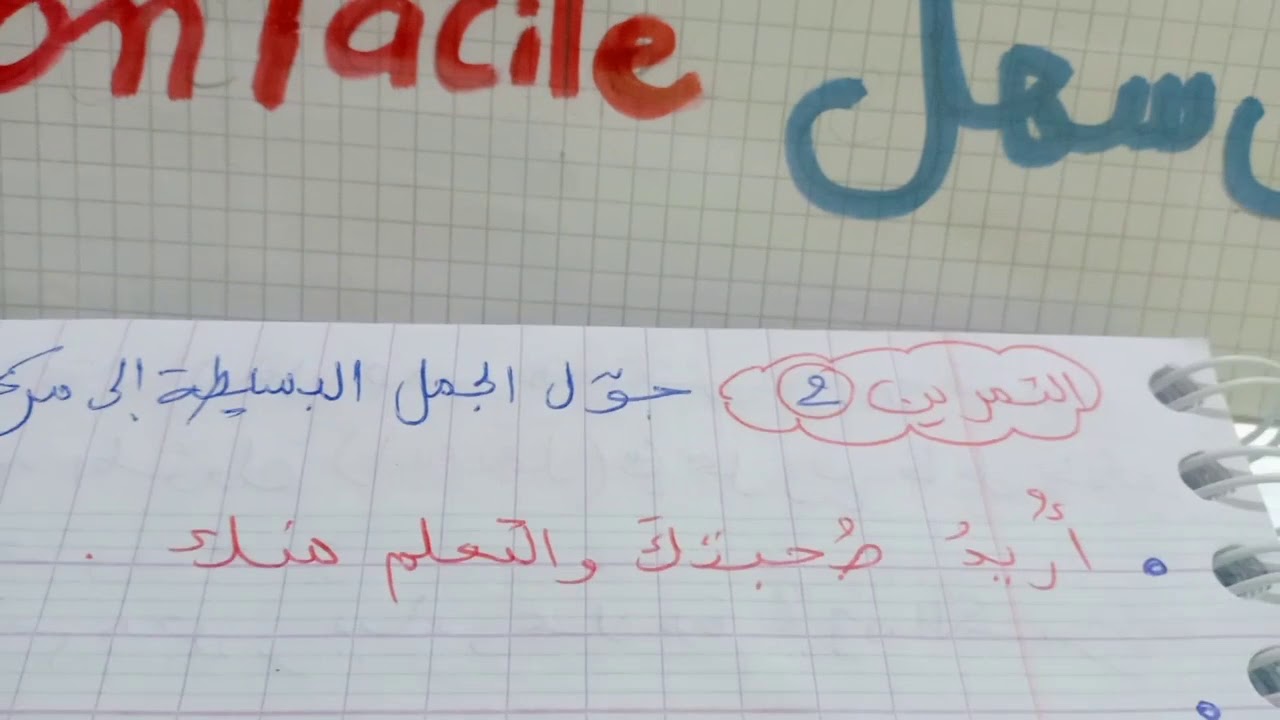 facile
سهل
التمرين 2 حوّل الجمل البسيطة إلى
أُريدُ صُحبتكَ والتعلم منك .